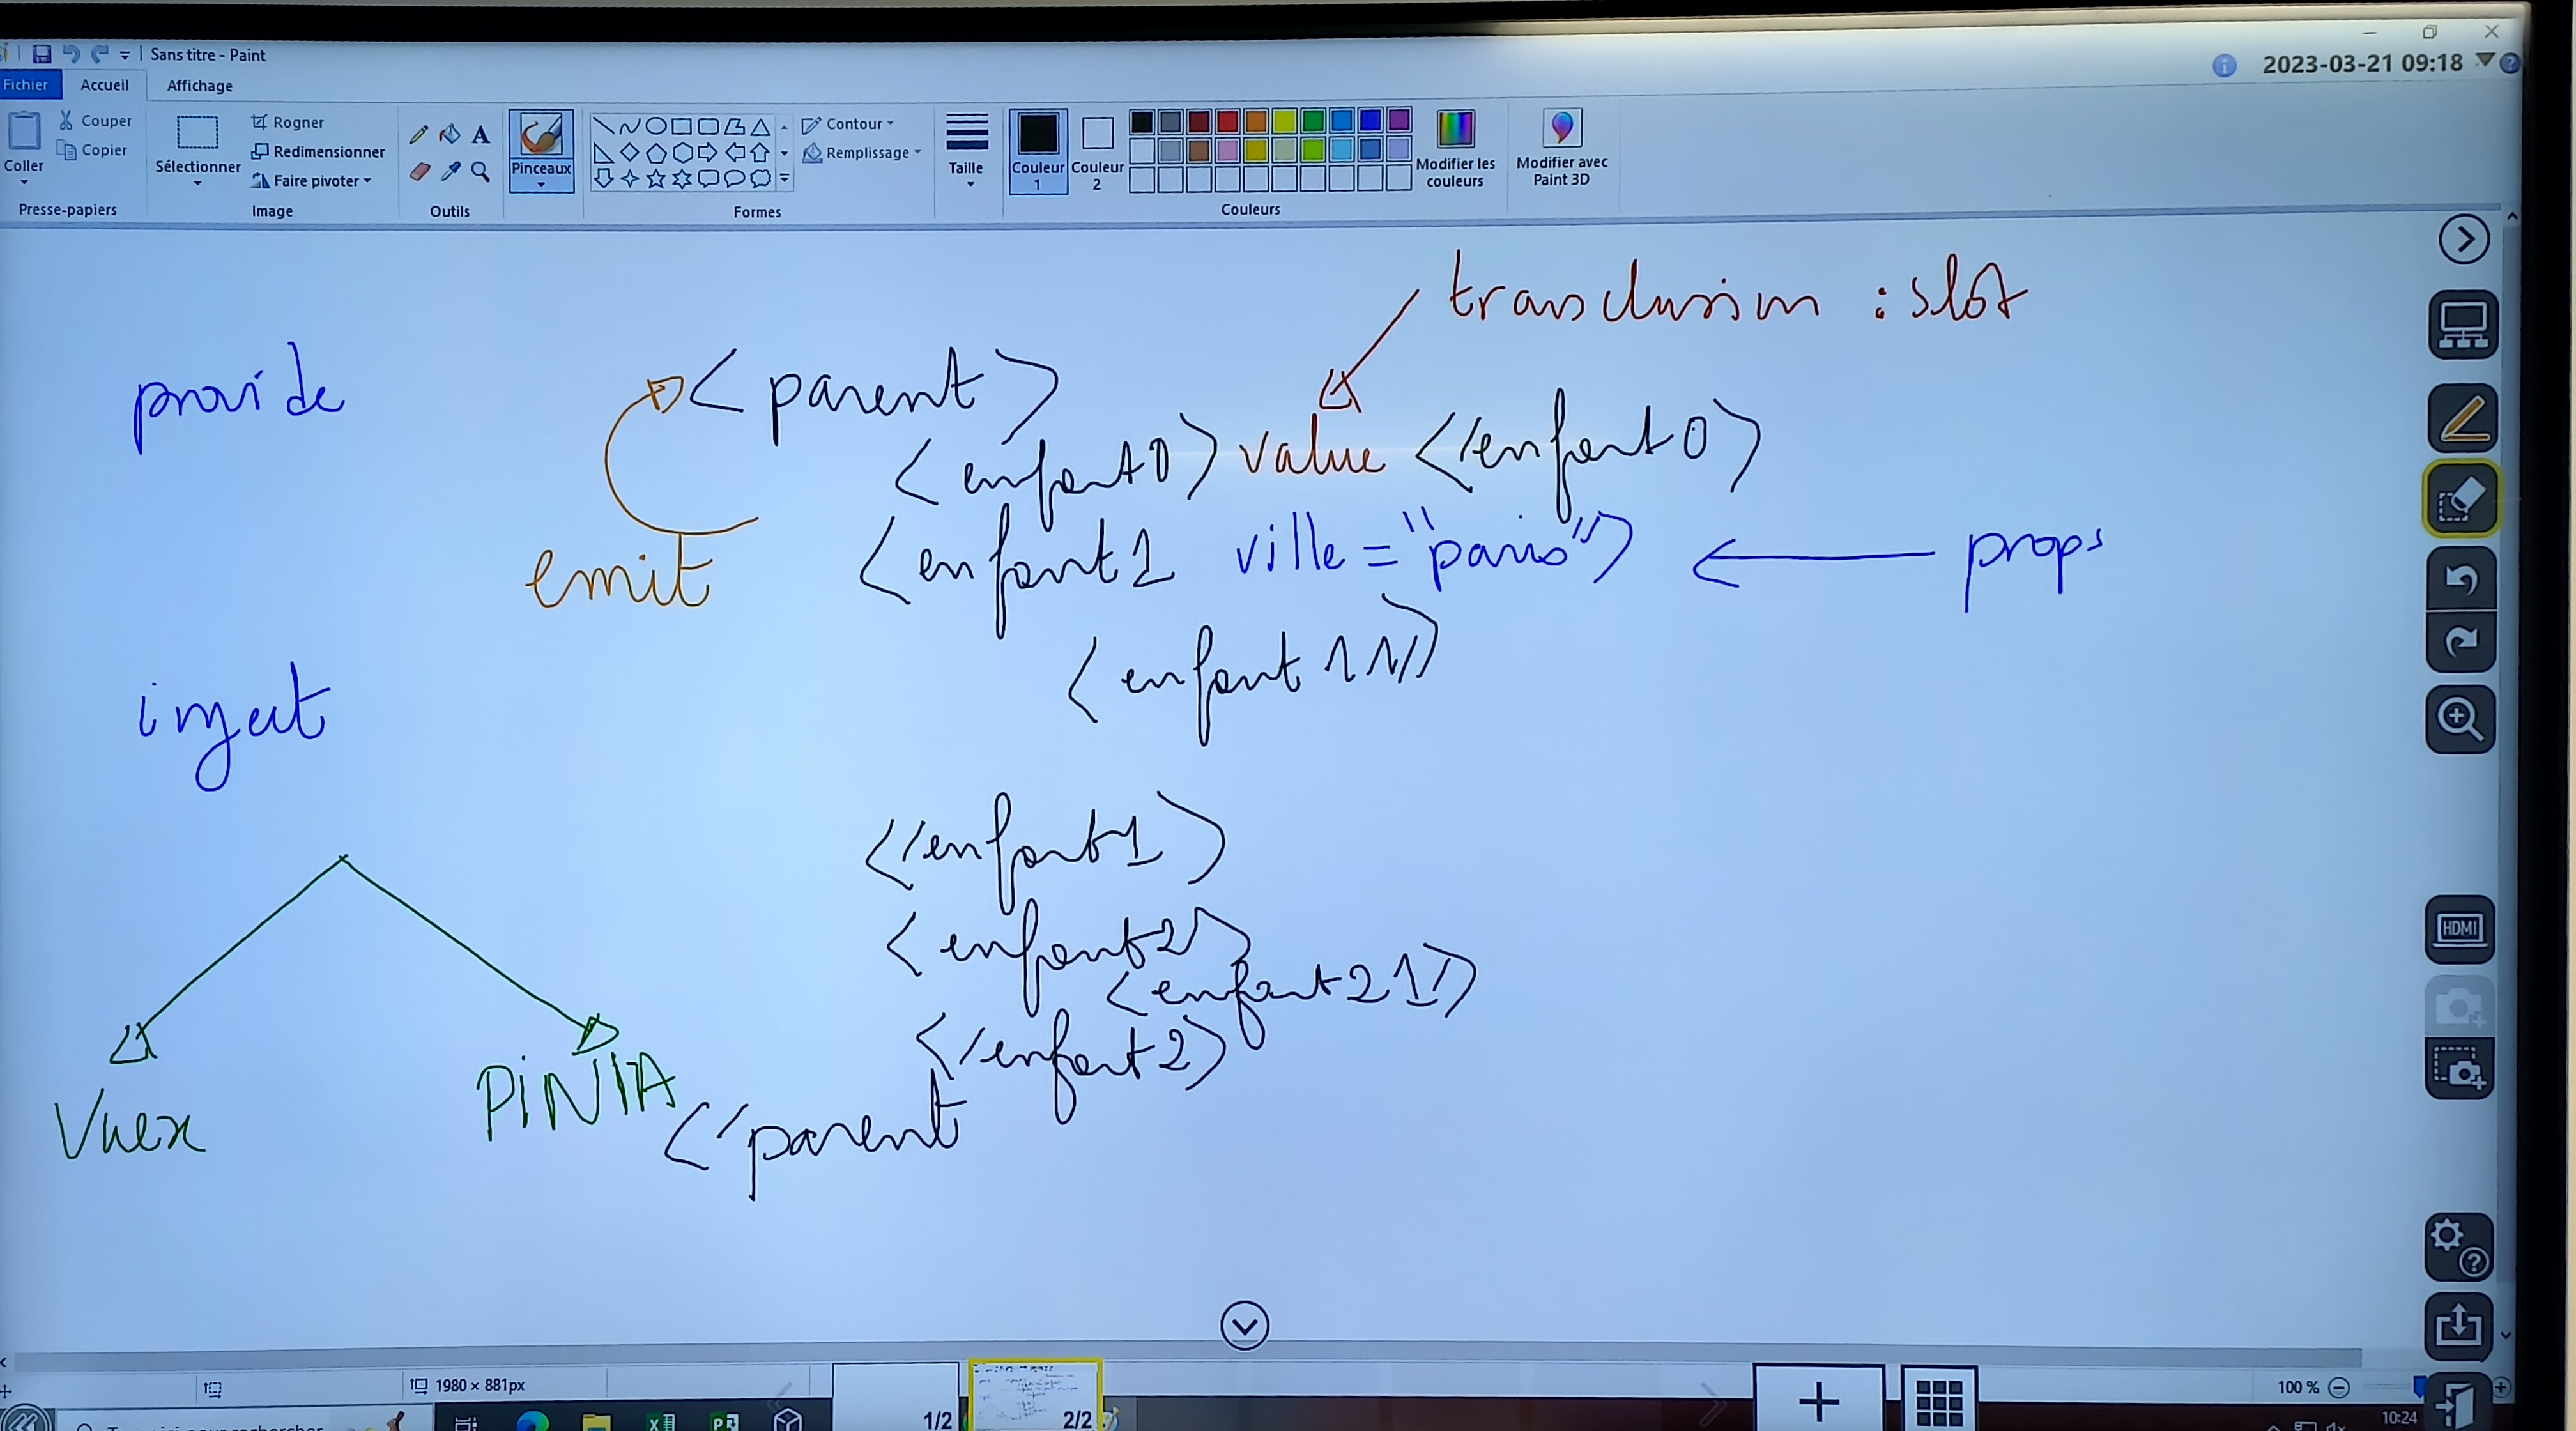 Sans titre - Paint
2023-03-21 09:18
Fichier Accueil Affichage
Coller
Couper
Copier
Presse-papiers
Sélectionner
Rogner
Redimensionner
Faire pivoter
Image
A
Outils
Pinceaux
Contour
Remplissage
Formes
Taille
Couleur 1
Couleur 2
Modifier les couleurs
Couleurs
Modifier avec Paint 3D
transclusion : slot
provide
<parent>
<enfant0> value </enfant0>
emit
<enfant1 ville = "paris"> props
<enfant 11/>
inject
</enfant1>
<enfant2>
<enfant21/>
</enfant2>
Vuex
PiNIA
</parent
HDMI
1980 × 881px
1/2
2/2
100 %
10:24